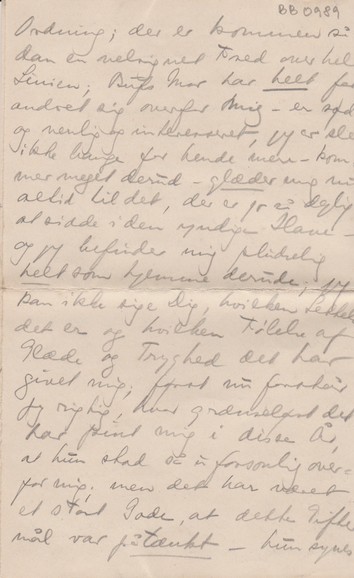 BB0989
Ordning; der er kommen så
dan en velsignet Fred over hele
Linien; Bufs Mor har helt for
andret sig overfor mig – er sød
og venlig og interesseret, jeg er slet
ikke bange for hende mere – kom
mer meget derud – glæder mig nu
altid til det, der er jo så dejligt
at sidde i den yndige Have –
og jeg befinder mig pludselig
helt som hjemme derude; jeg
kan ikke sige Dig, hvilken Lettelse
det er og hvilken Følelse af
Glæde og Tryghed det har
givet mig; først nu forstår
jeg rigtig, hvor grænseløst det
har pint mig i disse År,
at hun stod så uforsonlig over-
for mig; men det har været
et stort Gode, at dette Gifte
mål var påtænkt – hun synes